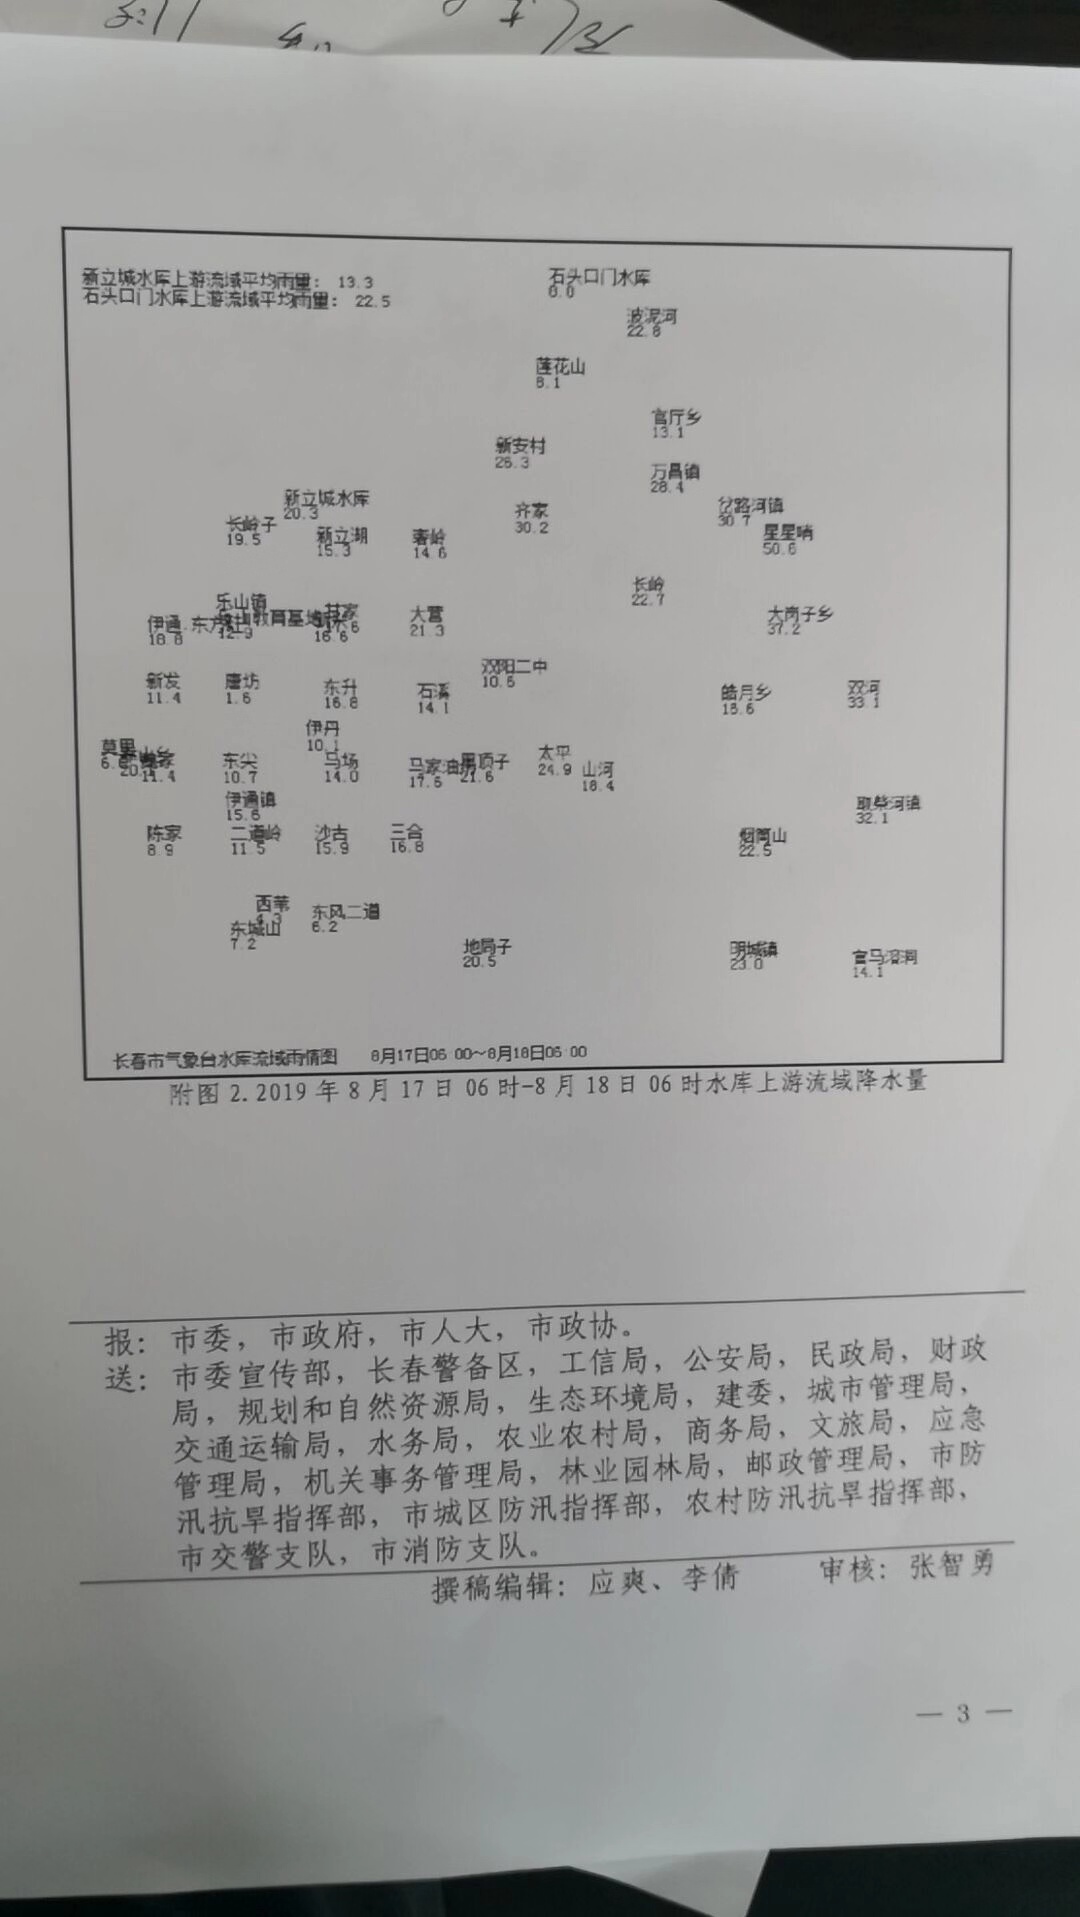 新立城水库上游流域平均雨量： 13.3
石头口门水库上游流域平均雨量： 22.5
石头口门水库
0.0
波泥河
22.8
莲花山
8.1
官厅乡
13.1
新安村
26.3
万昌镇
28.4
新立城水库
20.3
齐家
30.2
岔路河镇
30.7
长岭子
19.5
新立湖
15.3
奢岭
14.6
星星哨
50.6
长岭
22.7
乐山镇
12.9
大营
21.3
大岗子乡
37.2
18.8
16.6
双阳二中
10.6
新发
11.4
唐坊
1.6
东升
16.8
石溪
14.1
皓月乡
双河
33.1
伊丹
10.1
莫里
东尖
10.7
马场
14.0
17.6
21.6
太平
24.9
山河
18.4
11.4
伊通镇
15.6
取柴河镇
32.1
陈家
8.9
二道岭
11.5
沙古
15.9
三合
16.8
烟筒山
22.5
西苇
4.3
东风二道
6.2
东城山
7.2
地局子
20.5
明城镇
23.0
官马溶洞
14.1
长春市气象台水库流域雨情图 8月17日06:00～8月18日06:00
附图2.2019年8月17日06时-8月18日06时水库上游流域降水量
报：市委，市政府，市人大，市政协。
送：市委宣传部，长春警备区，工信局，公安局，民政局，财政
局，规划和自然资源局，生态环境局，建委，城市管理局，
交通运输局，水务局，农业农村局，商务局，文旅局，应急
管理局，机关事务管理局，林业园林局，邮政管理局，市防
汛抗旱指挥部，市城区防汛指挥部，农村防汛抗旱指挥部，
市交警支队，市消防支队。
撰稿编辑：应爽、李倩 审核：张智勇
— 3 —